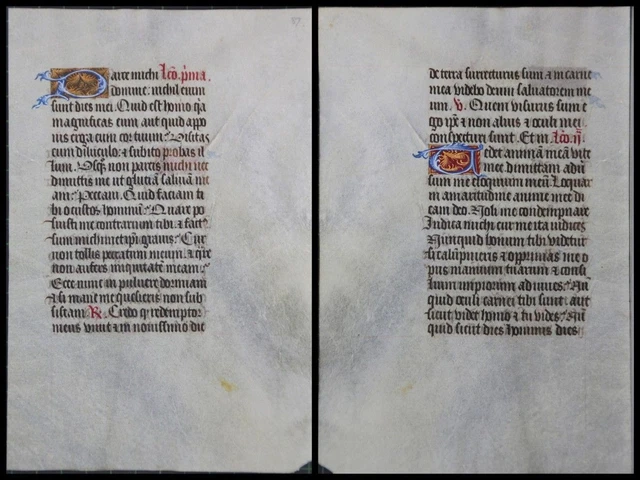 Parce michi lco. pma.
domine: nichil enim
sunt dies mei. Quid est homo qia
magnificas eum aut quid appo
nis erga eum cor tuum. Uisitas
eum diluculo: et subito probas il
lum. Usq; non parcis michi nec
dimittis me ut glutiā salivam me
am: Peccavi. Quid faciam ti
bi o custos hominū. Quare po
suisti me contrarium tibi: et factus
sum michimetipi gravis: Cur
non tollis peccatum meum: et quare
non aufers iniquitatē meam:
Ecce nunc in pulvere dormiam
et si mane me quesieris non sub
sistam. R. Credo q redemptor
meus vivit et in novissimo die
de terra surrecturus sum et in carne
mea videbo deum salvatorem me
um. V. Quem visurus sum e
go ipē et non alius et oculi mei
conspecturi sunt. Et in lco. ij
Tedet animā meā vite
mee dimittam adv
sum me eloquium meū. Loquar
in amaritudine anime mee di
cam deo. Noli me condempnare
Indica michi cur me ita iudices
Nunquid bonum tibi videtur
si calupnieris et opprimas me o
pus manuum tuarum et consi
lium impiorum adiuves: Nū
quid oculi carnei tibi sunt: aut
sicut videt homo et tu vides: Nū
quid sicut dies hominis dies